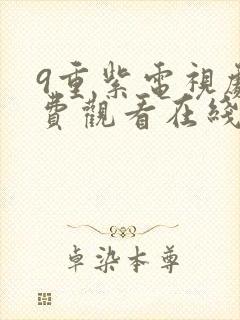 9重紫電視劇
費觀看在綫
卓染本尊